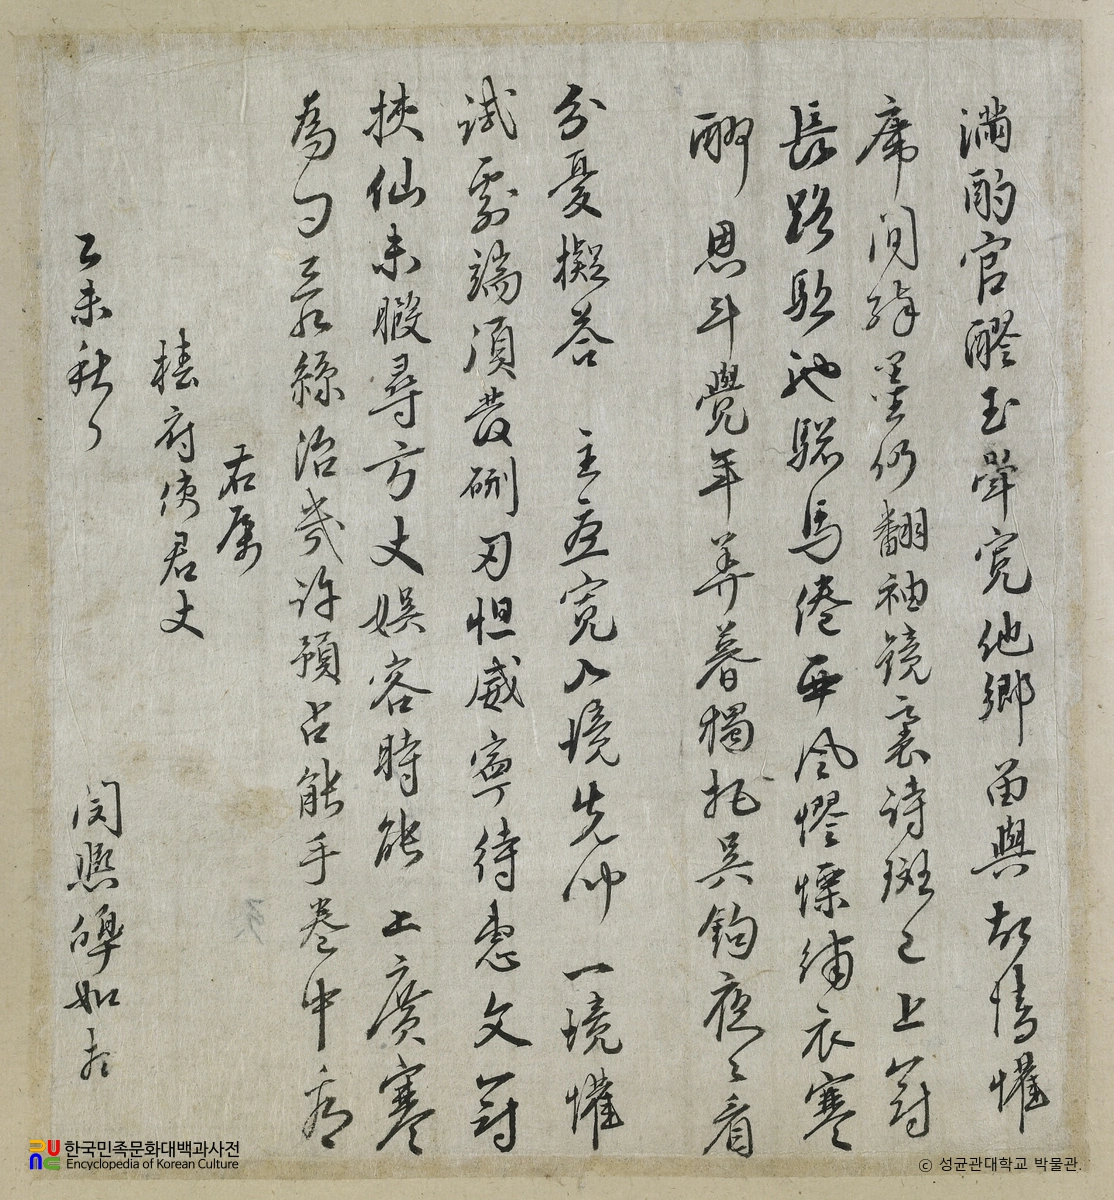 滿酌官醪玉斝寬他鄕留與故情懽
席間綵墨仍翻袖鏡裏詩斑已上簪
長路駐驰驄馬倦西風憀慄繡衣寒
酬恩斗覺年華暮獨把吳鉤夜〻看
分憂擬答 主恩寬入境先聞一境懽
試劇端須發硎刃怛威寧待惠文簪
挾仙未暇尋方丈娛客時能上廣寒
爲 絲治 許預占能手卷中看
右屬
椿府使君丈
乙未秋
閔熙 如
한국민족문화대백과사전
Encyclopedia of Korean Culture
© 성균관대학교 박물관.